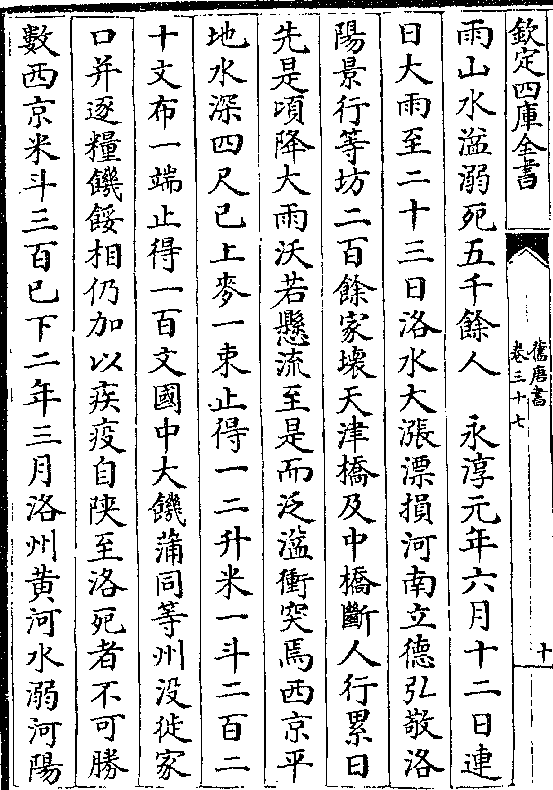 欽定四庫全書
舊唐書
卷三十七
十
雨山水溢溺死五千餘人　永淳元年六月十二日連
日大雨至二十三日洛水大漲漂損河南立德弘敬洛
陽景行等坊二百餘家壊天津橋及中橋斷人行累日
先是頃降大雨沃若懸流至是而泛溢衝突焉西京平
地水深四尺已上麥一束止得一二升米一斗二百二
十文布一端止得一百文國中大饑蒲同等州没徙家
口并逐糧饑餒相仍加以疾疫自陜至洛死者不可勝
數西京米斗三百已下二年三月洛州黄河水溺河陽